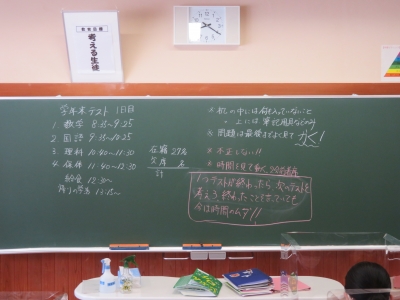 教育目標
考える生徒
学年末テスト 1日目
1 数学 8:35〜9:25
2 国語 9:35〜10:25
3 理科 10:40〜11:30
4 保体 11:40〜12:30
給食 12:30〜
13:15〜
在籍 27名
欠席 名
計
※ 机の中には何も入っていないこと
〃 上には筆記用具などのみ
※ 問題は最後までよく見て
※ 不正しない!!
※ 時間を見て動く
1つテストが終わったら、次のテストを
考えろ。終わったことを言っていても
今は時間のムダ!!